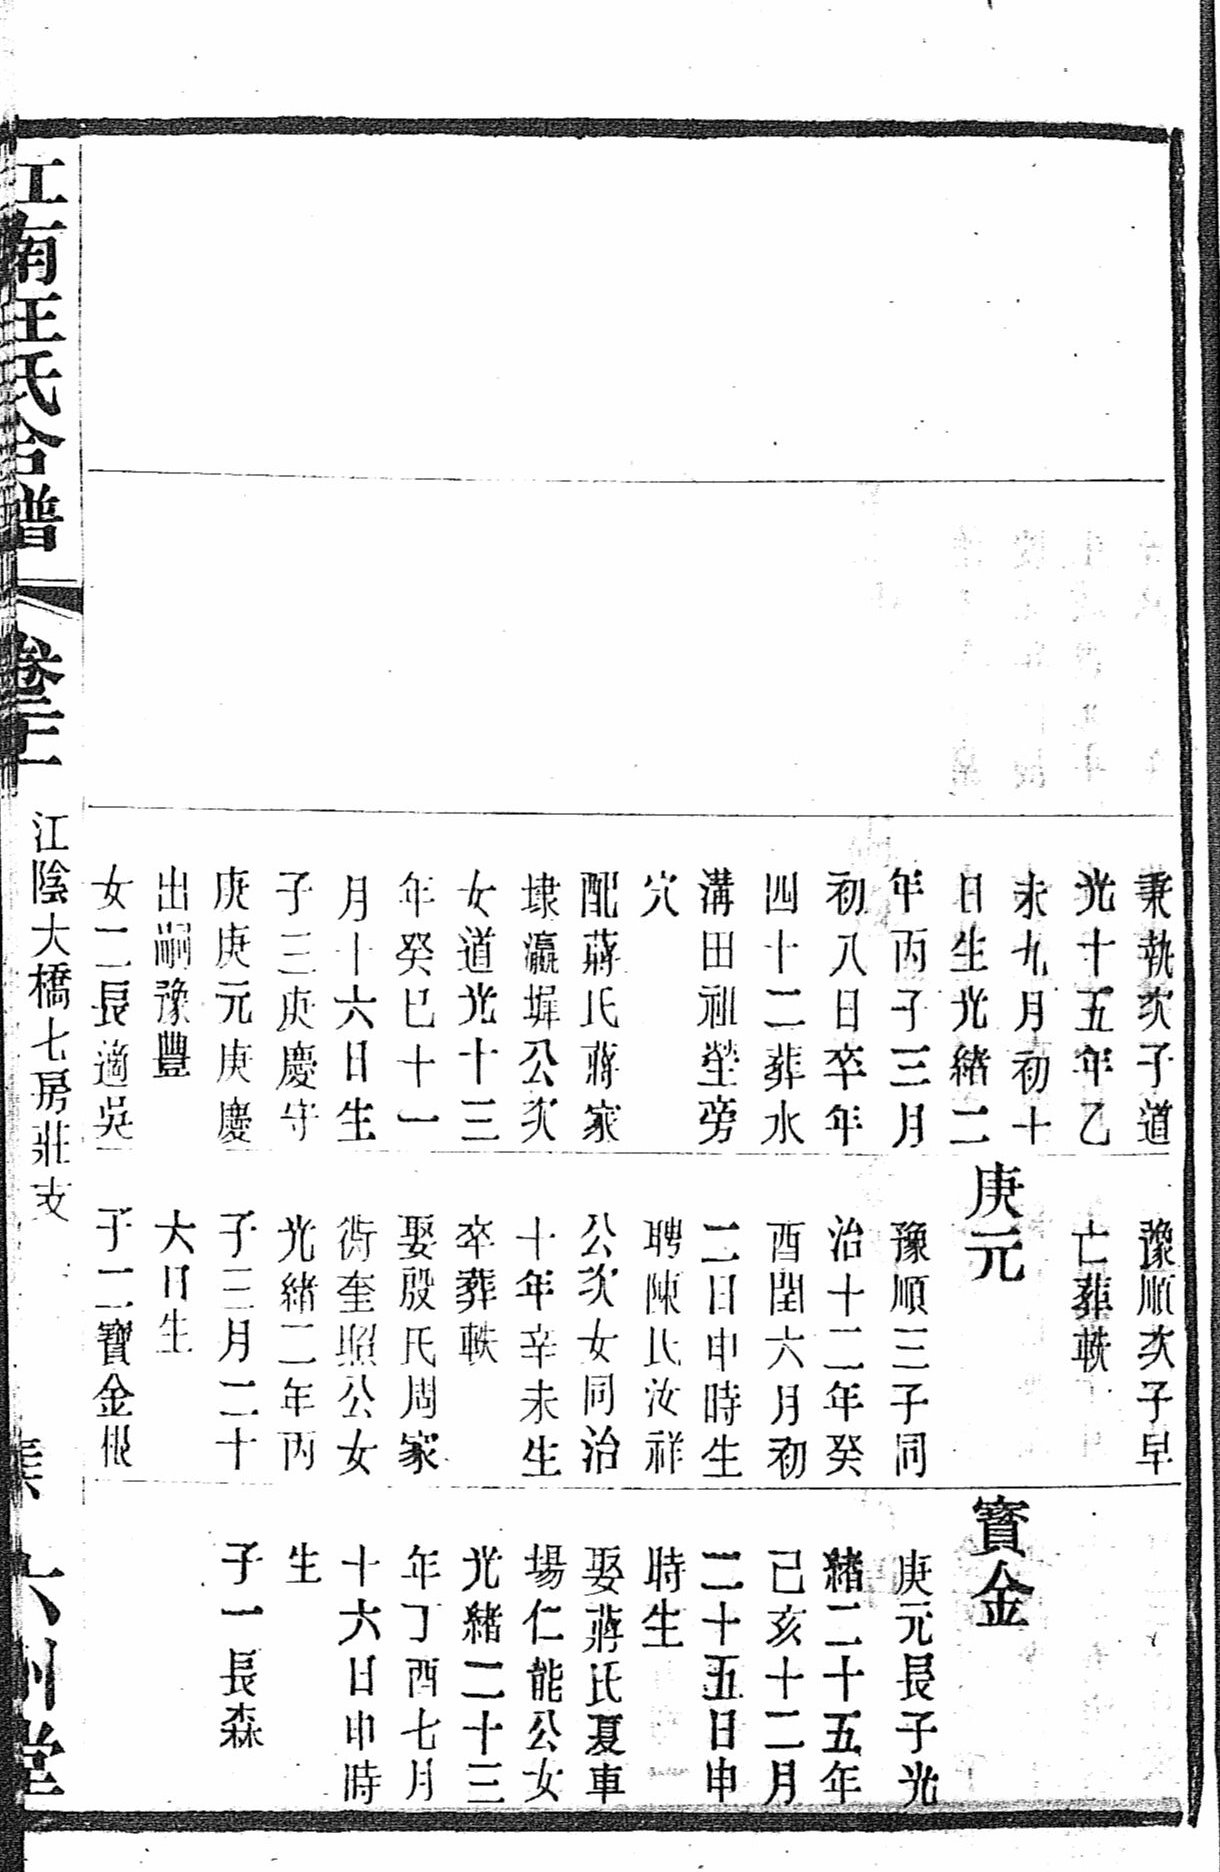 秉執次子道
光十五年乙
未九月初十
日生光緒二
年丙子三月
初八日卒年
四十二葬水
溝田祖塋旁
穴
配蔣氏蔣家
埭瀛墀公次
女道光十三
年癸巳十一
月十六日生
子三庚慶守
庚庚元庚慶
出嗣豫豐
女二長適吳
豫順次子早
亡葬帙
庚元
豫順三子同
治十二年癸
酉閏六月初
二日申時生
聘陳氏汝祥
公次女同治
十年辛未生
卒葬帙
娶殷氏周家
衖奎照公女
光緒二年丙
子三月二十
大日生
子二寶金根
寶金
庚元長子光
緒二十五年
己亥十二月
二十五日申
時生
娶蔣氏夏車
場仁能公女
光緒二十三
年丁酉七月
十六日申時
生
子一長森
江南王氏合譜
卷
江陰大橋七房莊支
六州堂